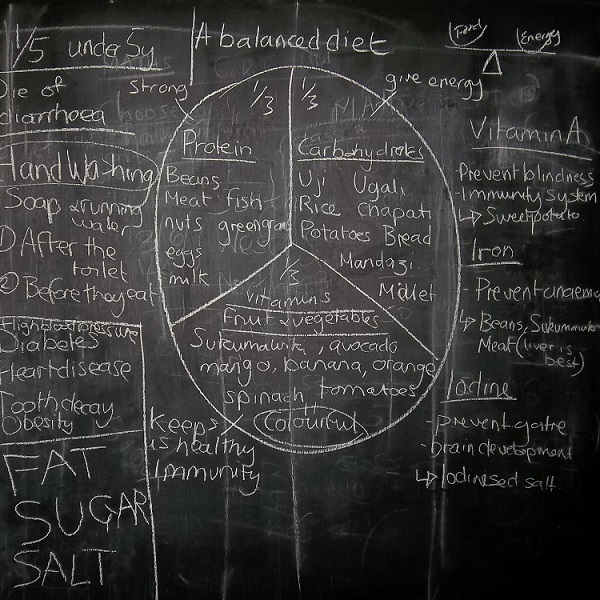 1/5 under 5y
Die of
diarrhoea
Hand Washing
Soap & running
water
① After the
toilet
② Before they eat
High blood pressure
Diabetes
Heart disease
Tooth decay
Obesity
FAT
SUGAR
SALT
A balanced diet
strong
1/3
Protein
Beans
Meat fish
nuts greengrams
eggs
milk
give energy
1/3
Carbohydrates
Uji Ugali
Rice Chapati
Potatoes Bread
Mandazi
Millet
1/3
vitamins
Fruit & vegetables
Sukumawiki, avocado
mango, banana, orange
spinach tomatoes
Colourful
Keeps
us healthy
Immunity
Energy
Vitamin A
Prevent blindness
- Immunity System
↳ Sweet potato
Iron
- Prevent anaemia
↳ Beans, Sukumawiki
Meat (liver is
best)
Iodine
- prevent goitre
- brain development
↳ Iodinised salt.